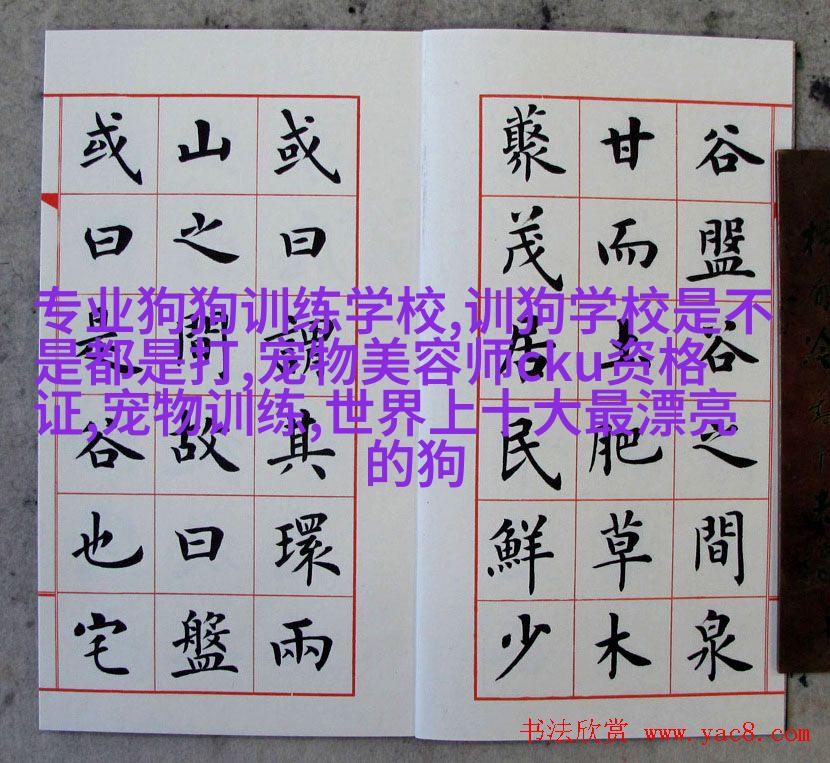 谷盤谷之間泉
甘而土肥草木
藂茂居民鮮少
或曰謂其環兩
山之間故曰盤
或曰是谷也宅
专业狗狗训练学校,训狗学校是不
是都是打,宠物美容师cku资格
证,宠物训练,世界上十大最漂亮
的狗
书法欣赏 www.yac8.com